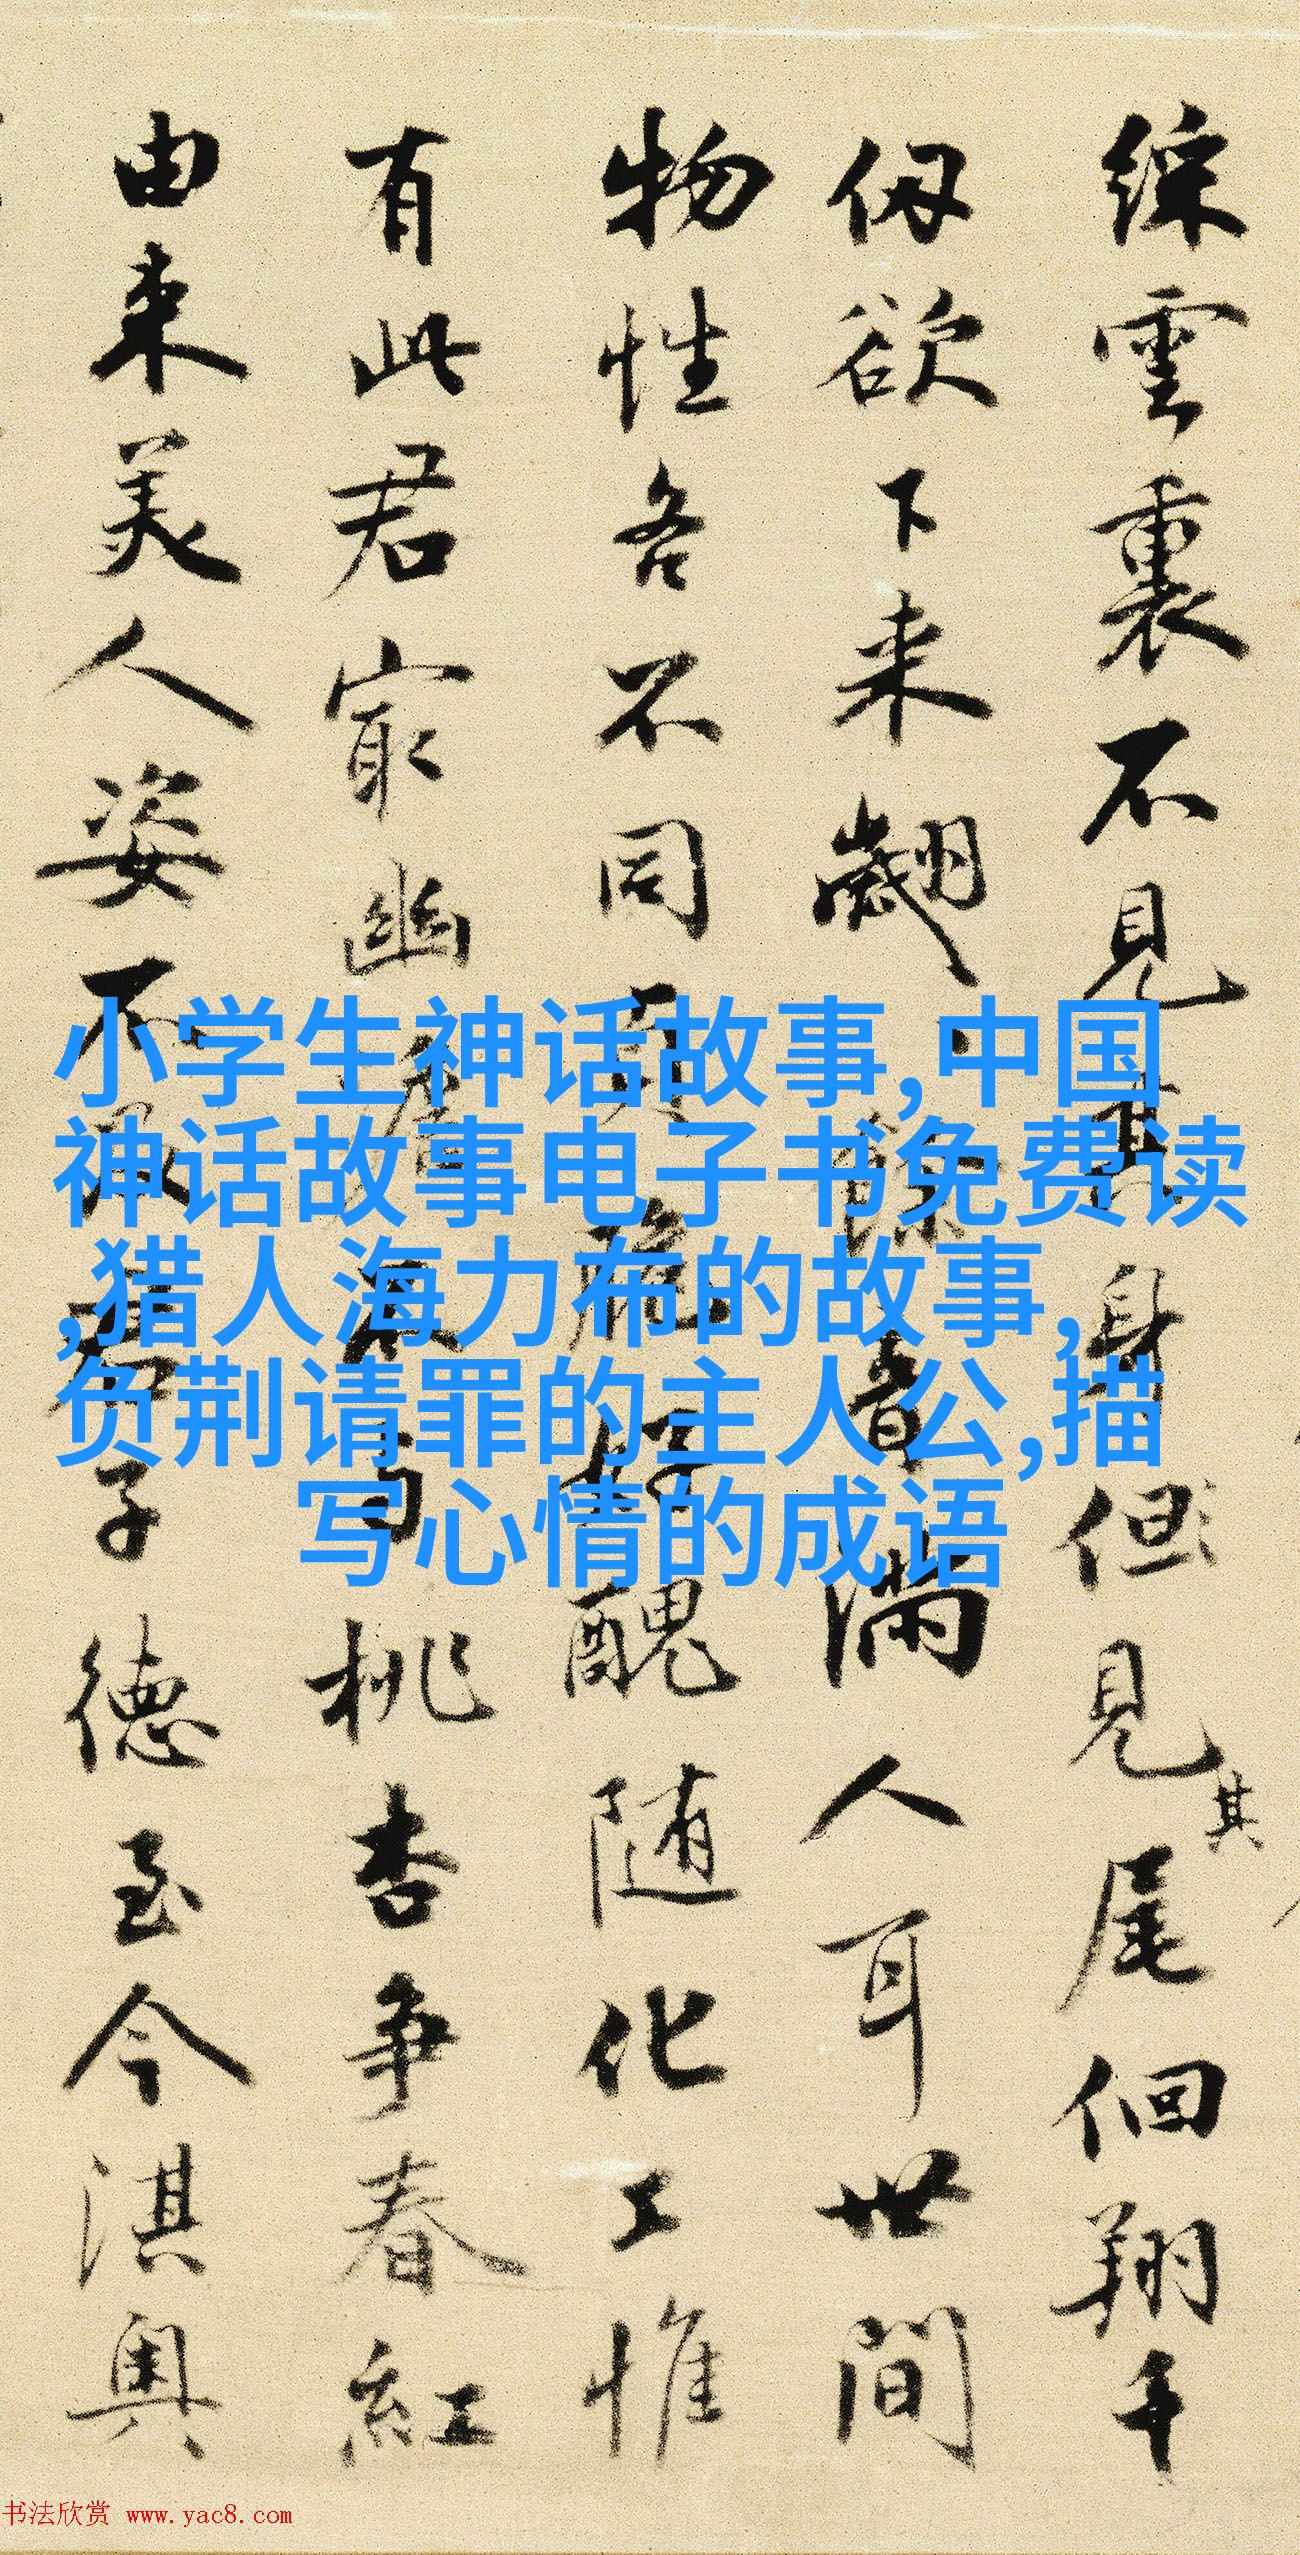 綵雲裏不見其身但見其尾佪翔千
仞欲下来翽餘音满人耳世間
物性各不同好醜随化工惟
有此君㝡幽不与桃杏争春紅
由来美人姿不君子德至今淇奥
小学生神话故事,中国
神话故事电子书免费读
,猎人海力布的故事,
负荆请罪的主人公,描
写心情的成语
书法欣赏 www.yac8.com